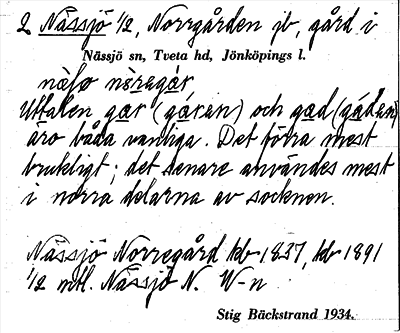 2 Nässjö 1/2, Norrgården jb, gård i
Nässjö sn, Tveta hd, Jönköpings l.
nàʃø nòregår
Uttalen gar (gáran) och gad (gádan)
äro båda vanliga. Det förra mest
brukligt; det senare användes mest
i norra delarna av socknen.
Nässjö Norregård kb 1837, kb 1891
1/2 mtl. Nässjö N. W-n
Stig Bäckstrand 1934.